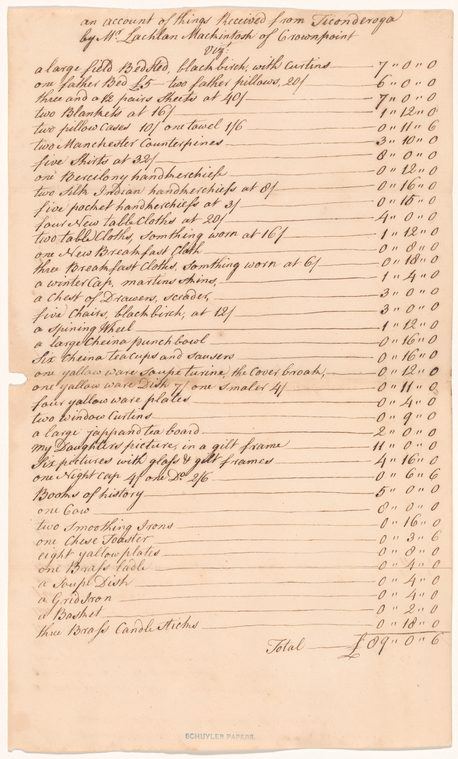 an account of things Received from Ticonderoga
by Mr. Lachlan Mackintosh of Crownpoint
Viz.
a large field Bedsted, black birch, with Curtins 7 " 0 " 0
one father Bed £5 — two father pillows, 20/ 6 " 0 " 0
three and a ½ pairs Sheets at 40/ 7 " 0 " 0
two Blankets at 16/ 1 " 12 " 0
two pillow Cases 10/ one towel 1/6 0 " 11 " 6
two Manchester Counterpines 3 " 10 " 0
five Shirts at 32/ 8 " 0 " 0
one Bercilony handkerchieff 0 " 12 " 0
two Silk Indian handkerchieffs at 8/ 0 " 16 " 0
five pocket handkerchieffs at 3/ 0 " 15 " 0
four New table Cloths at 20/ 4 " 0 " 0
two table Cloths, somthing worn at 16/ 1 " 12 " 0
one New Breakfast Cloth 0 " 8 " 0
three Breakfast Cloths, Somthing worn at 6/ 0 " 18 " 0
a winter Cap, martins Skins, 1 " 4 " 0
a Chest of Drawers, Sceader, 3 " 0 " 0
five Chairs, black birch, at 12/ 3 " 0 " 0
a Spining Wheel 1 " 12 " 0
a large Cheina punch bowl 0 " 16 " 0
Six Cheina tea Cups and Sausers 0 " 16 " 0
one yallow ware Soupe turine, the Cover broak, 0 " 12 " 0
one yallow ware Dish 7/ one Smaler 4/ 0 " 11 " 0
four yallow ware plates 0 " 4 " 0
two window Curtins 0 " 9 " 0
a large jappand tea board 2 " 0 " 0
my Daughters picture, in a gilt frame 11 " 0 " 0
Six pictures with glass & gilt frames 4 " 16 " 0
one Night Cap 4/ one Do. 2/6 0 " 6 " 6
Books of history 5 " 0 " 0
one Cow 8 " 0 " 0
two Smoothing Irons 0 " 16 " 0
one Chese Toaster 0 " 3 " 6
eight yallow plates 0 " 8 " 0
one Brass Ladle 0 " 4 " 0
a Soupe Dish 0 " 4 " 0
a Grid Iron 0 " 4 " 0
a Basket 0 " 2 " 0
three Brass Candle Sticks 0 " 18 " 0
Total £ 89 " 0 " 6
SCHUYLER PAPERS.